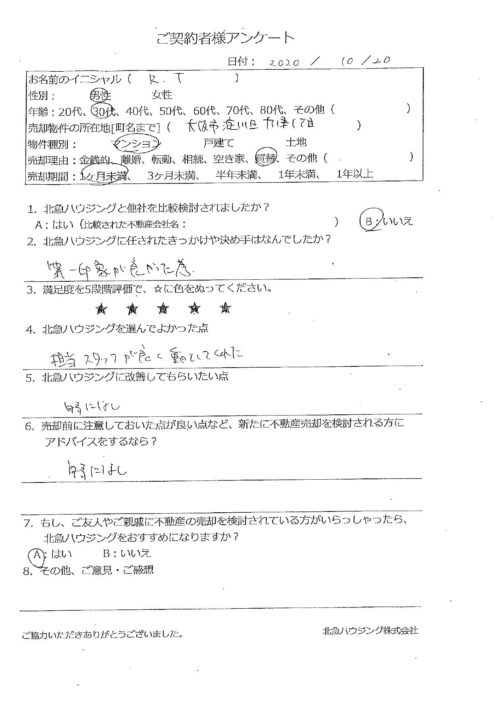 ご契約者様アンケート
日付： 2020 / 10 / 20
お名前のイニシャル（ K.T ）
性別： 男性 女性
年齢：20代、30代、40代、50代、60代、70代、80代、その他（ ）
売却物件の所在地[町名まで]（ 大阪市淀川区 丁目
物件種別： マンション 戸建て 土地
売却理由：金銭的、離婚、転勤、相続、空き家、買替、その他（ ）
売却期間：1ヶ月未満、 3ヶ月未満、 半年未満、 1年未満、 1年以上
1．北急ハウジングと他社を比較検討されましたか？
A：はい（比較された不動産会社名： ） B：いいえ
2．北急ハウジングに任されたきっかけや決め手はなんでしたか？
第一印象が良かった点
3．満足度を5段階評価で、☆に色をぬってください。
★ ★ ★ ★ ★
4．北急ハウジングを選んでよかった点
担当スタッフが良く してくれた
5．北急ハウジングに改善してもらいたい点
特になし
6．売却前に注意しておいた点が良い点など、新たに不動産売却を検討される方に
アドバイスをするなら？
特になし
7．もし、ご友人やご親戚に不動産の売却を検討されている方がいらっしゃったら、
北急ハウジングをおすすめになりますか？
A：はい B：いいえ
8．その他、ご意見・ご感想
ご協力いただきありがとうございました。
北急ハウジング株式会社